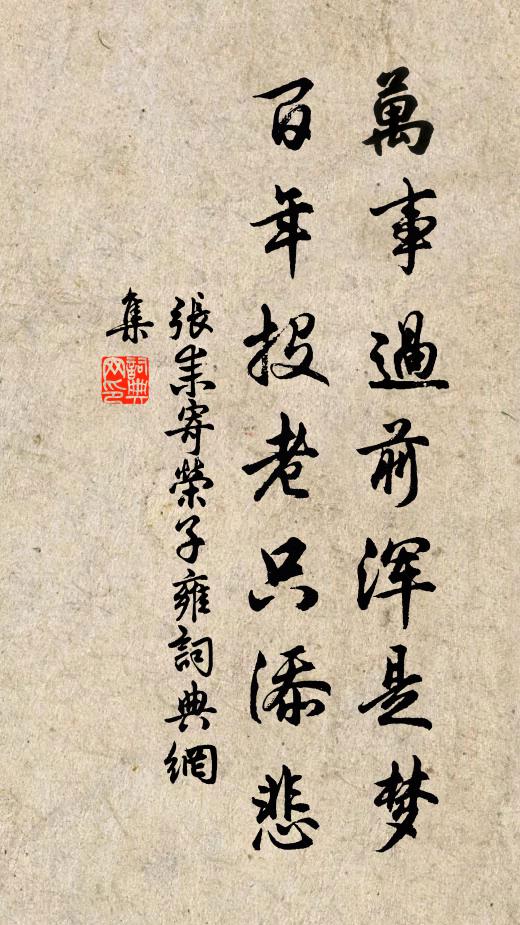 萬事過前浑是梦
百年投老只添悲
張耒寄榮子雍詞典網
集
詞典网印